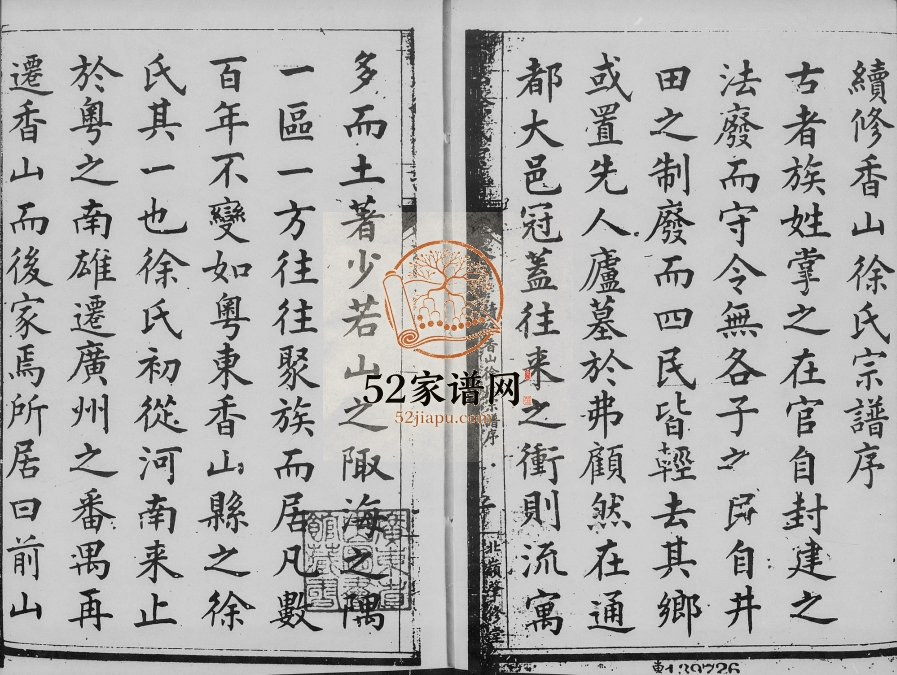 續修香山徐氏宗譜序
古者族姓掌之在官自封建之
法廢而守令無各子之民自井
田之制廢而四民皆輕去其鄉
或置先人廬墓於弗顧然在通
都大邑冠蓋往来之衝則流寓
多而土著少若山之陬海之隅
一區一方往往聚族而居凡數
百年不變如粤東香山縣之徐
氏其一也徐氏初從河南来止
於粤之南雄遷廣州之番禺再
遷香山而後家焉所居曰前山
52家谱网
52jiapu.com
139726